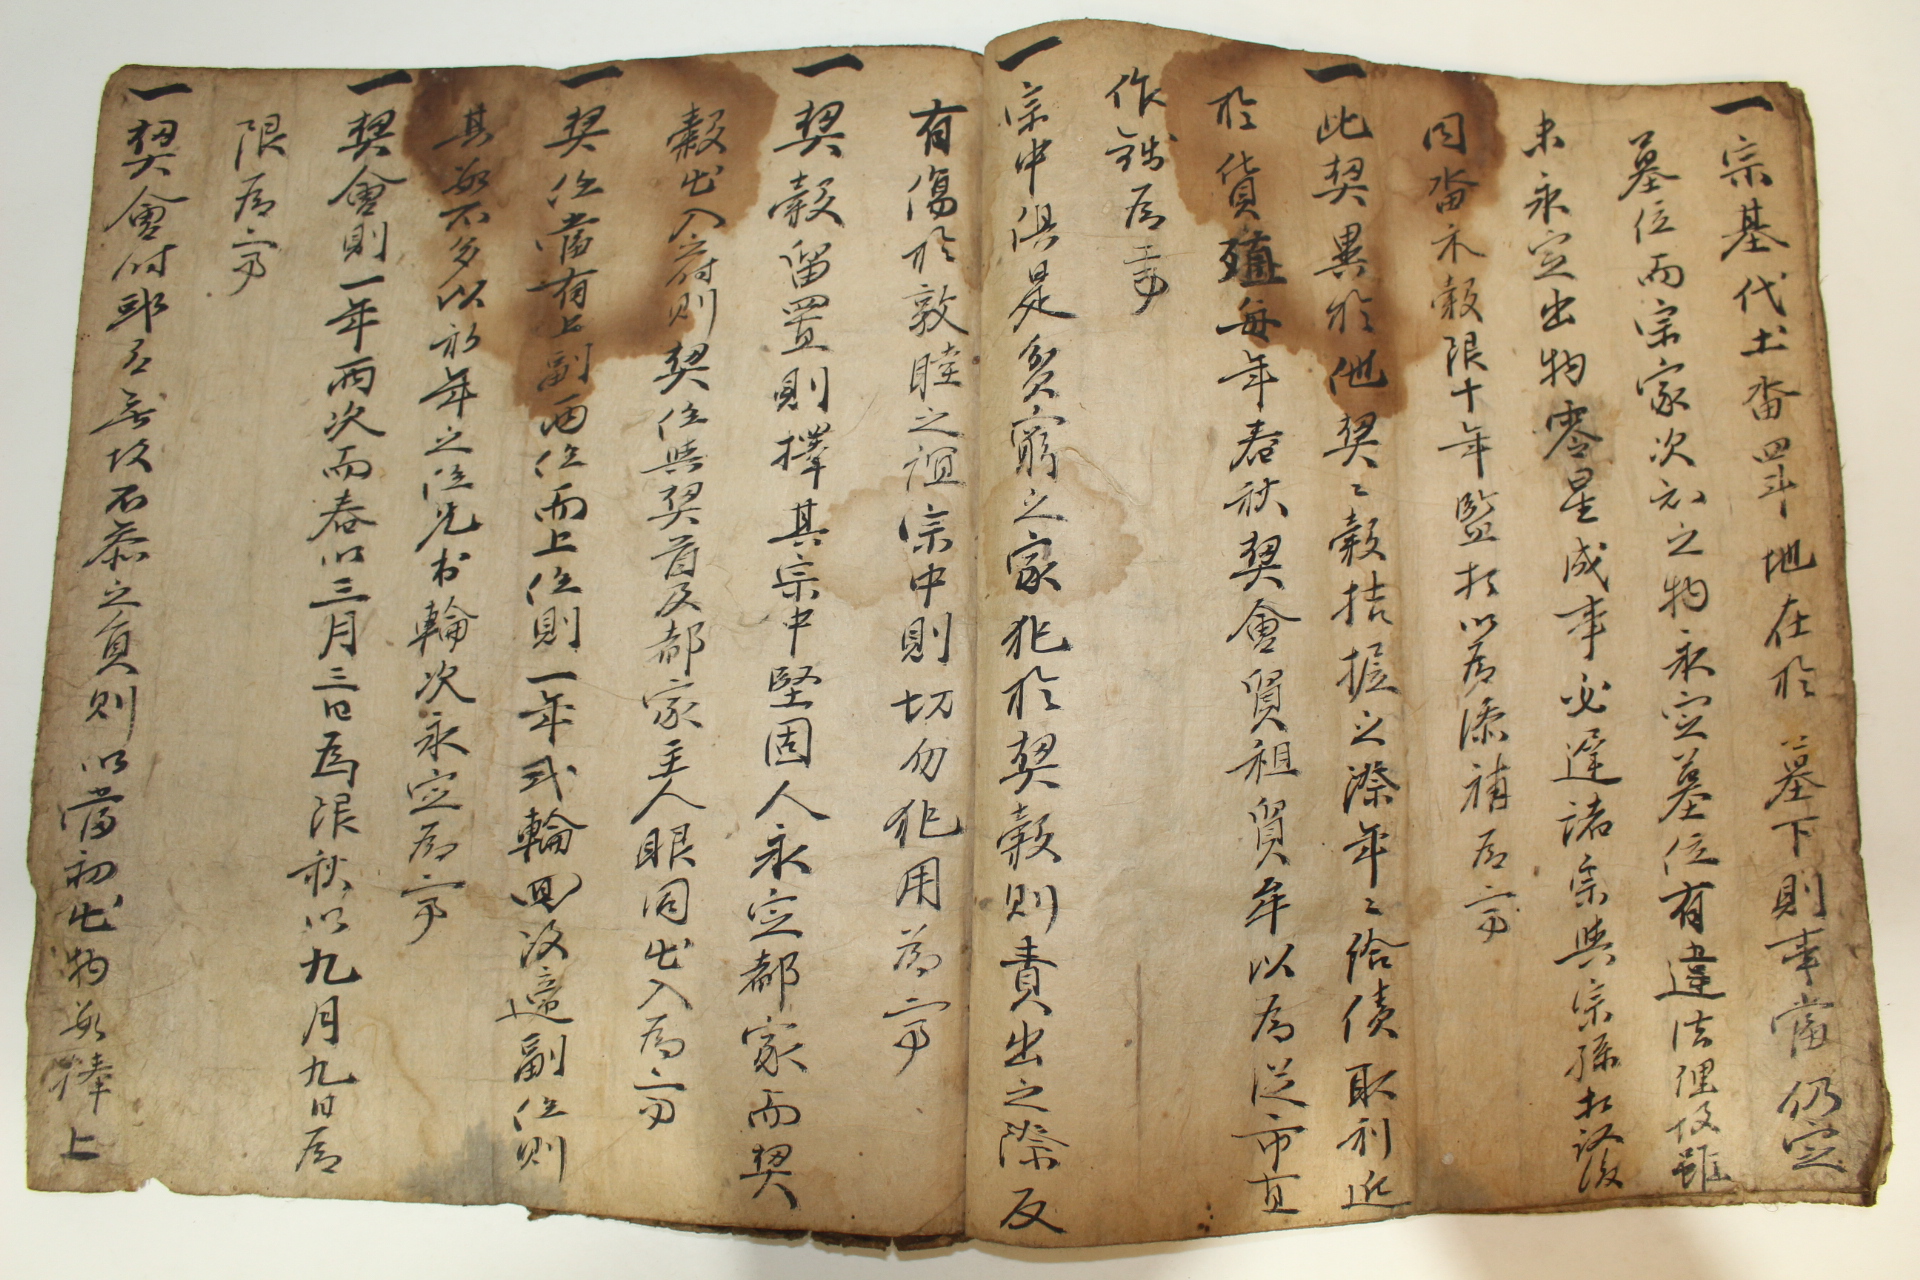 一宗基代土畓四斗地在於 墓下則事當仍定
墓位而宗家次知之物永定墓位有違法理故雖
未永定出物零星成事必遲諸宗與宗孫相議後
同畓禾穀限十年監捧以爲添補爲㫆
一此契異於他契〻穀拮据之際年〻給債取利近
於貨殖每年春秋契會貿租貿牟以爲從市直
作錢爲㫆
一宗中俱是貧窮之家犯於契穀則責出之際反
有傷於敦睦之誼宗中則切勿犯用爲㫆
一契穀留置則擇其宗中堅固人永定都家而契
穀出入之時則契任與契首及都家主人眼同出入爲㫆
一契任當有上副兩任而上任則一年式輪回次第副任則
其數不多以新年之任先書輪次永定爲㫆
一契會則一年兩次而春以三月三日爲限秋以九月九日爲
限爲㫆
一契會時 無故不參之員則以當初出物數捧上